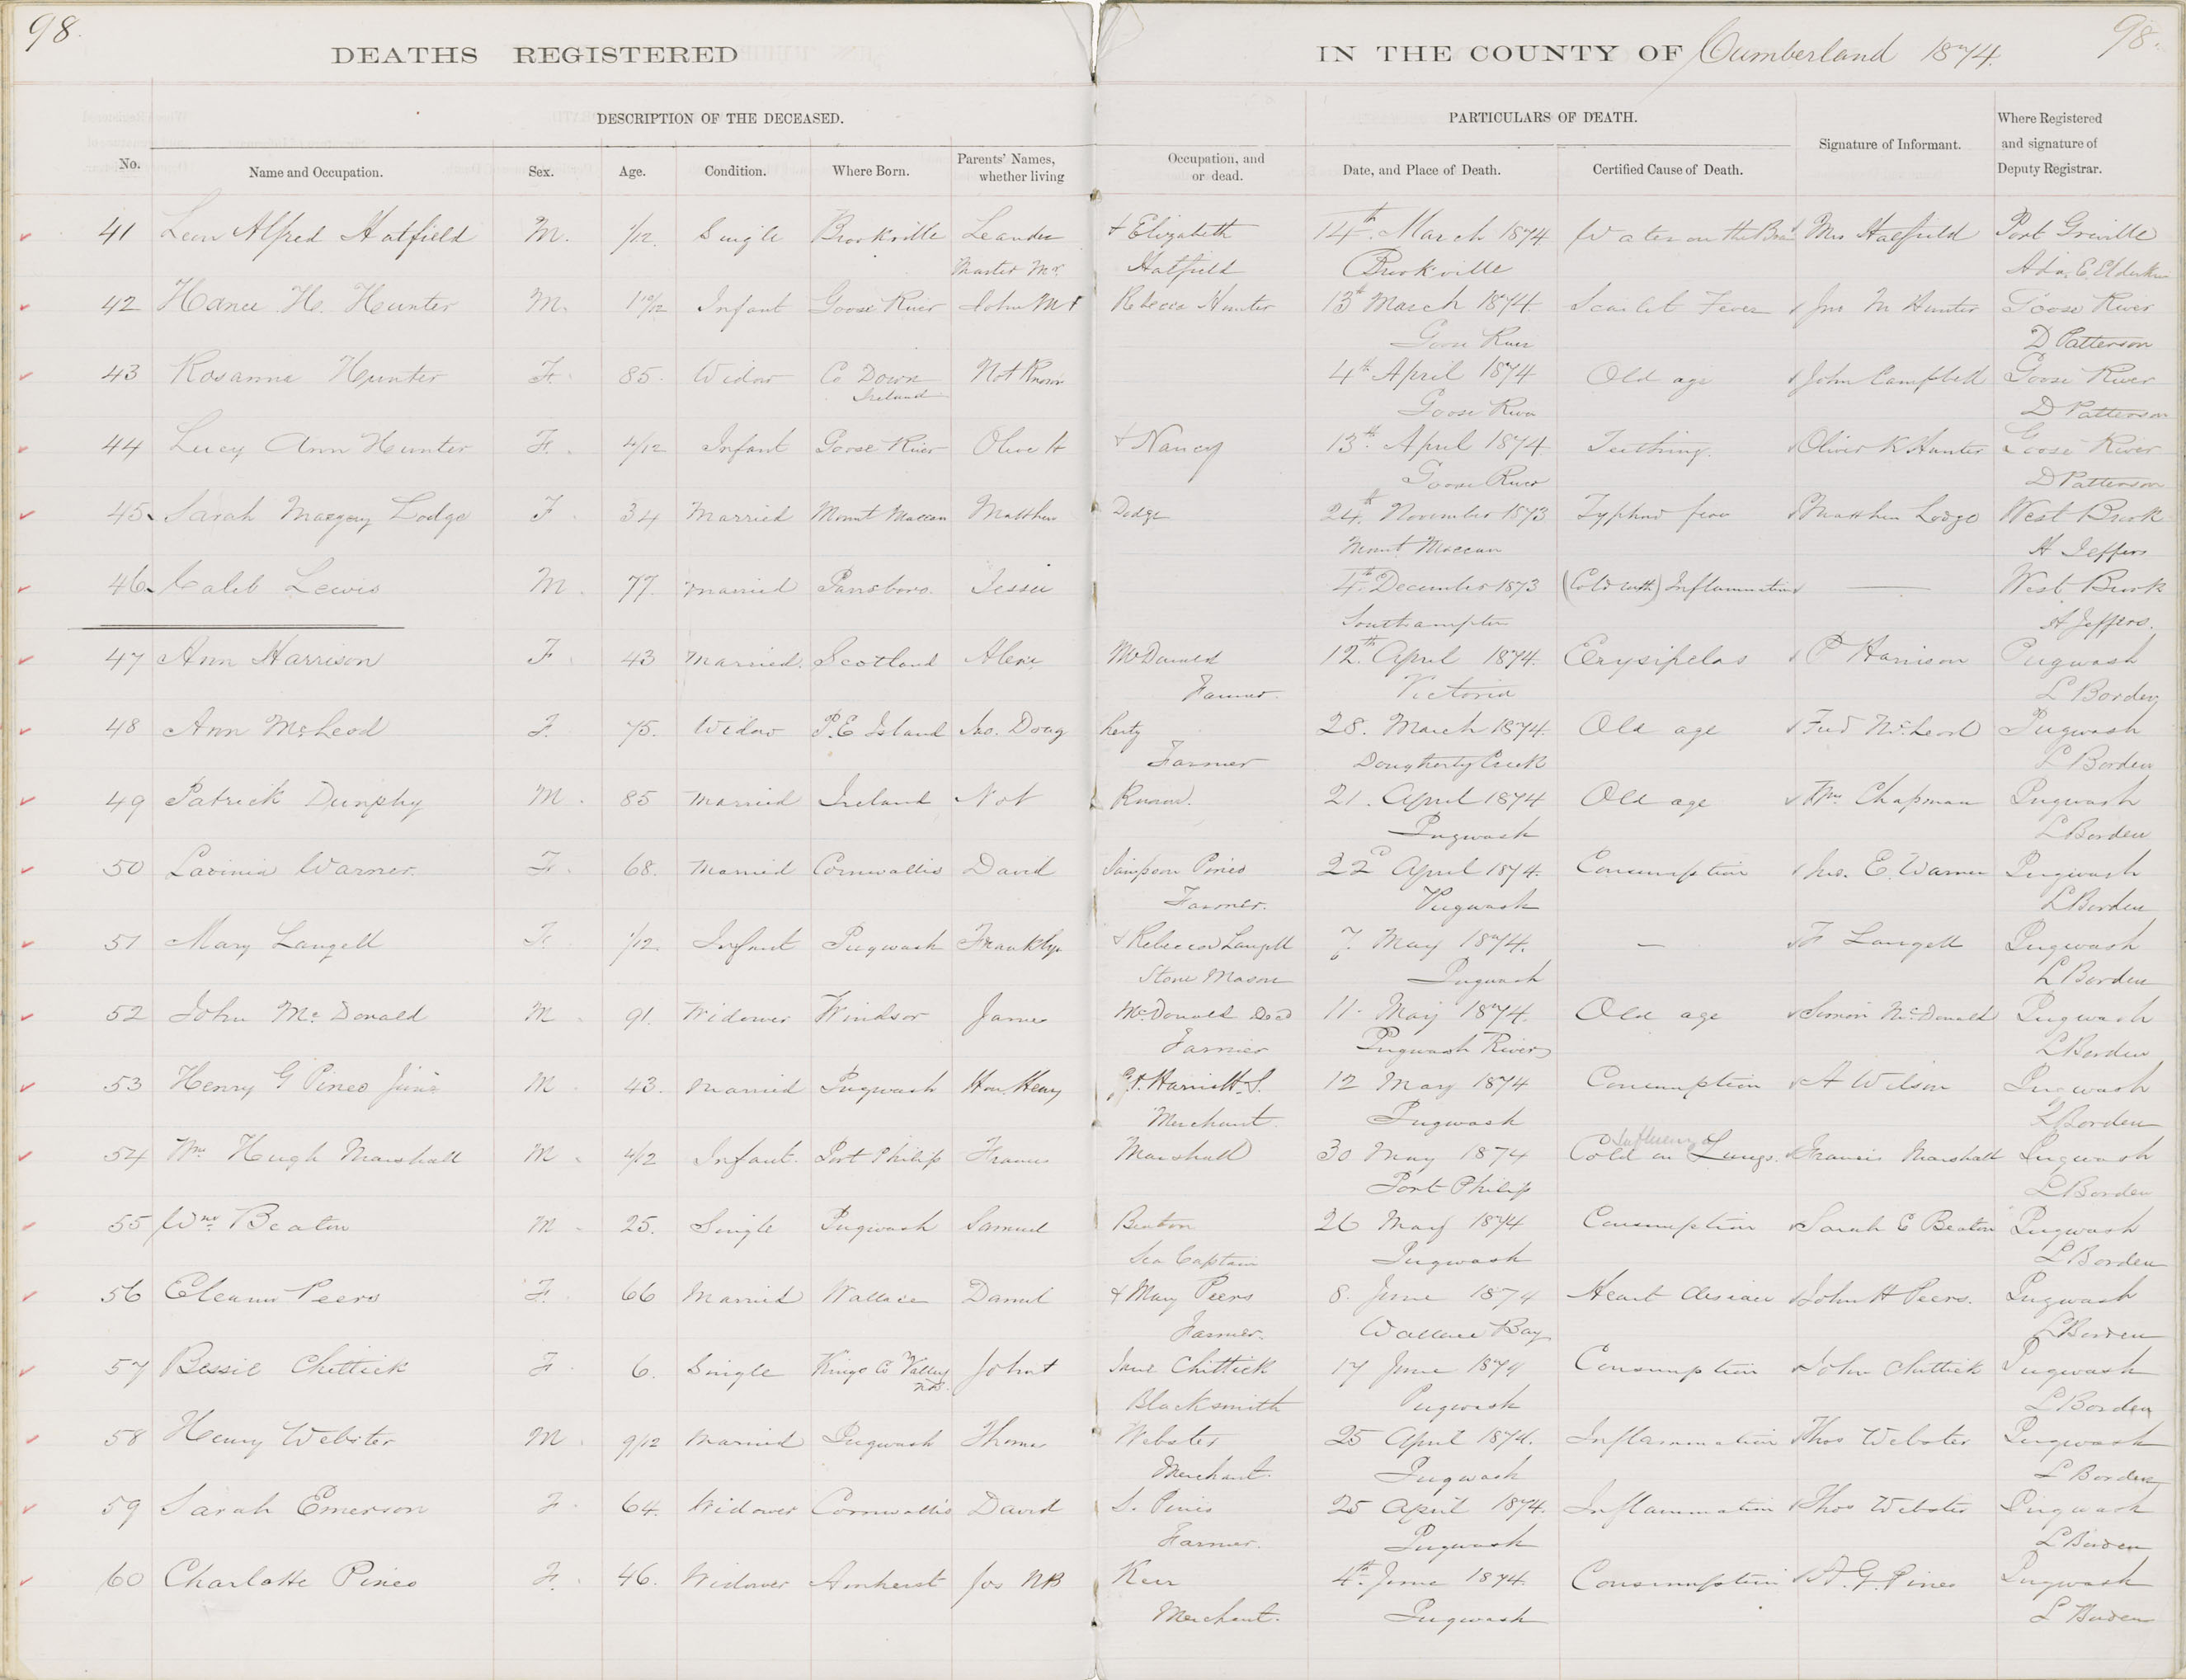 98. 98.
DEATHS REGISTERED IN THE COUNTY OF Cumberland 1874.
DESCRIPTION OF THE DECEASED. PARTICULARS OF DEATH. Where Registered
and signature of
Deputy Registrar.
No. Name and Occupation. Sex. Age. Condition. Where Born. Parents' Names, Occupation, and Date, and Place of Death. Certified Cause of Death. Signature of Informant.
whether living or dead.
41 Alfred Hatfield M. 1/12 Single Brookville Leander & Elizabeth 14th March 1874 Water on the Brain Mrs Hatfield Port Greville
Master Mr. Hatfield Brookville Ada. E. Elderkin
42 Hance H. Hunter M. 1 10/12 Infant Goose River John M & Rebecca Hunter 13th March 1874. Scarlet Fever Jno M Hunter Goose River
Goose River D Patterson
43 Rosanna Hunter F. 85. Widow Co Down Not Known 4th April 1874 Old age John Campbell Goose River
Ireland Goose River D Patterson
44 Lucy Ann Hunter F. 4/12 Infant Goose River & Nancy 13th April 1874. Teething. Oliver K Hunter Goose River
Goose River D Patterson
45 Sarah Margery Lodge F. 34 Married Mount Maccan Matthew Dodge 24th November 1873 Matthew Lodge West Brook
Mount Maccan H Jeffers
46 Caleb Lewis M. 77. Married Parsboro. Jesse 4th December 1873 (Cold with) Inflammation — West Brook
Southampton H Jeffers.
47 Ann Harrison F. 43 Married. Scotland McDonald 12th April 1874. Eerysipelas Harrison Pugwash
Farmer. Victoria L Borden
48 Ann McLeod F. 75. Widow P. E Island Jno. Doug herty 28. March 1874. Old age McLeod Pugwash
Farmer Dougherty Creek L Borden
49 Patrick Dunphy M. 85 Married Ireland Not Known. 21. April 1874 Old age Wm Chapman Pugwash
Pugwash L Borden
50 Lavinia Warner. F. 68. Married Cornwallis David Simpson Pineo 22d April 1874. Consumption Jno. E. Warner Pugwash
Farmer. Pugwash L Borden
51 Mary Langell F. 1/12. Infant Pugwash Franklyn & Rebecca Langell 7. May 1874. — F Langell Pugwash
Stone Mason Pugwash L Borden
52 John McDonald M. 91. Widower Windsor James McDonald Dead 11. May 1874. Old age Simon McDonald Pugwash
Farmer Pugwash River L Borden
53 Henry G Pineo Junr M. 43. Married Pugwash Hon. Henry G. & Harriett S. 12 May 1874 Consumption A Wilson Pugwash
Merchant. Pugwash L Borden
Influenza
54 Wm Hugh Marshall M. 4/12 Infant. Port Philip Francis Marshall 30 May 1874 Cold on Lungs. Francis Marshall Pugwash
Port Philip L Borden
55 Wm Beaton M. 25. Single Pugwash Samuel Beaton 26 May 1874 Consumption Sarah E Beaton Pugwash
Sea Captain Pugwash L Borden
56 Eleanor Peers F. 66 Married Wallace Daniel & Mary Peers 8. June 1874 Heart disease John H Peers. Pugwash
Farmer. Wallace Bay L Borden
57 Bessie Chittick F. 6. Single Kings Co Valley John & Jane Chittick 17 June 1874 Consumption John Chittick Pugwash
NB. Blacksmith Pugwash L Borden
58 Henry Webster M. 9/12 Married Pugwash Thomas Webster 25 April 1874. Inflammation Thos Webster Pugwash
Merchant. Pugwash L Borden
59 Sarah Emerson F. 64. Widower Cornwallis David S. Pineo 25 April 1874. Inflammation Thos Webster Pugwash
Farmer. Pugwash L Borden
60 Charlotte Pineo F. 46. Widower Amherst Jos NB Kerr 4th June 1874. Consumption Pineo Pugwash
Merchant. Pugwash L Borden